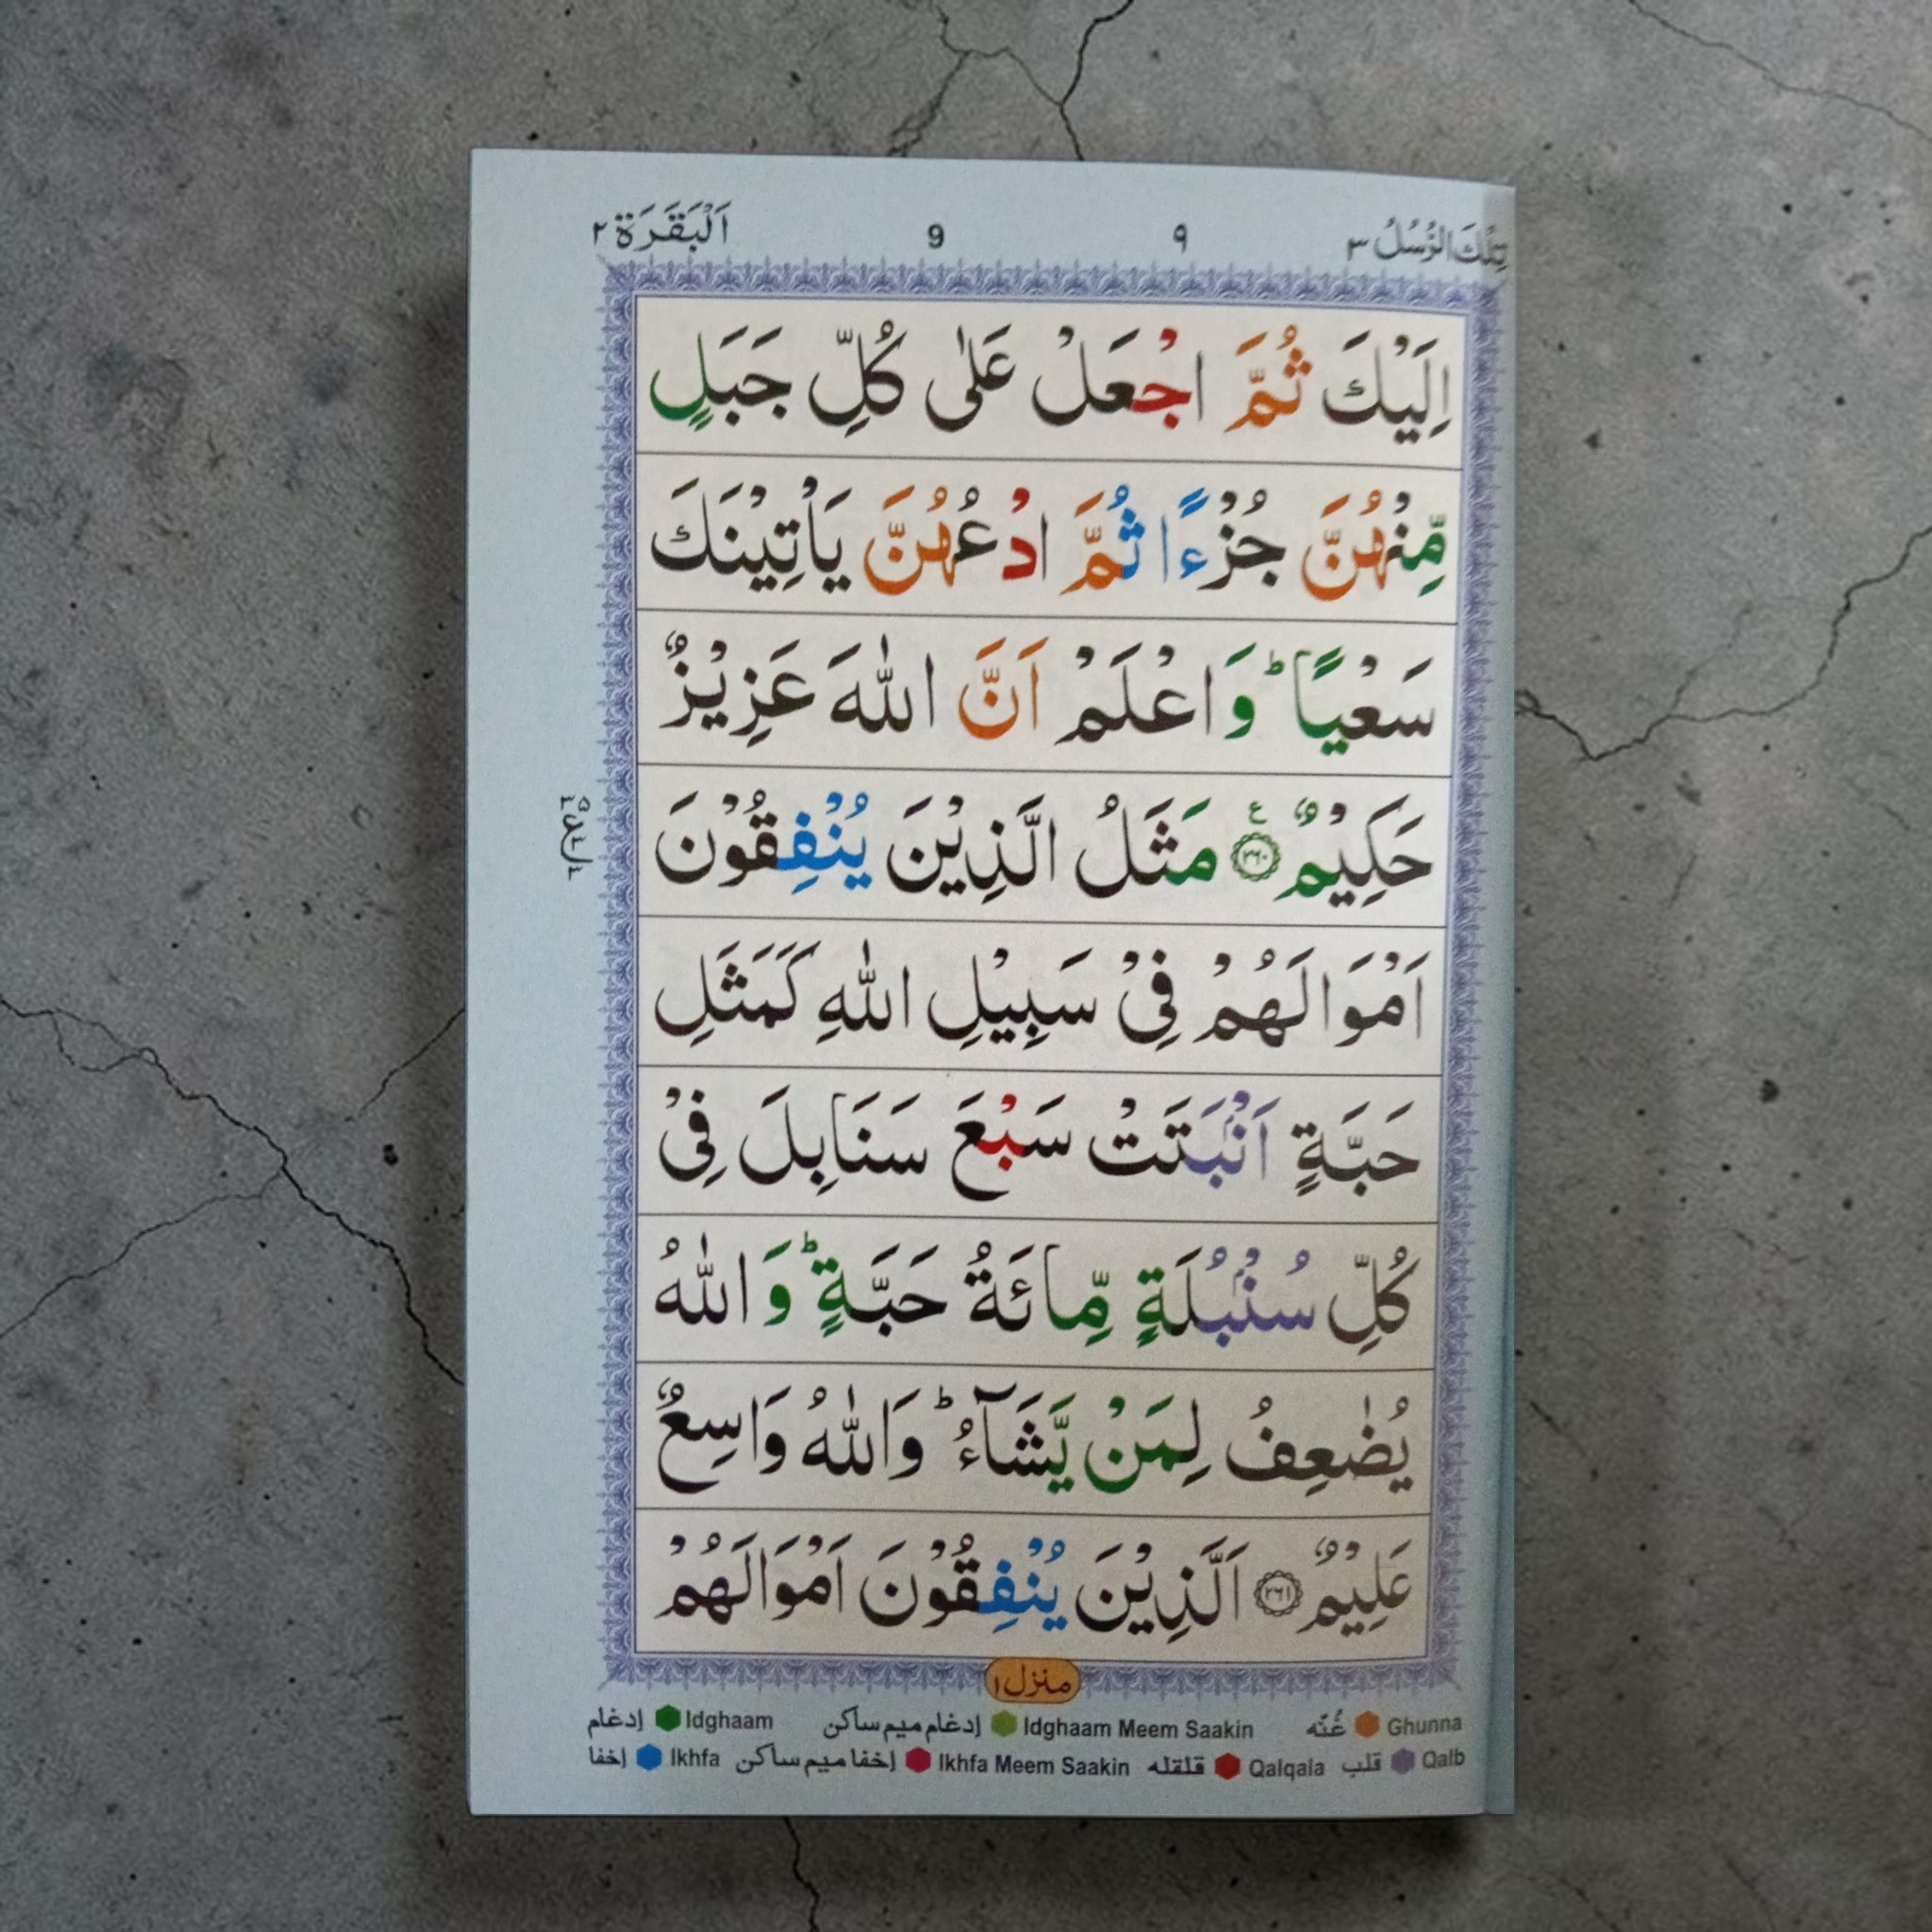 تِلْكَ الرُّسُلُ ٣ ٩ 9 اَلْبَقَرَة ٢
اِلَيْكَ ثُمَّ اجْعَلْ عَلٰى كُلِّ جَبَلٍ
مِّنْهُنَّ جُزْءًا ثُمَّ ادْعُهُنَّ يَاْتِيْنَكَ
سَعْيًا ؕ وَاعْلَمْ اَنَّ اللّٰهَ عَزِيْزٌ
حَكِيْمٌ ۝٢٦٠ ع مَثَلُ الَّذِيْنَ يُنْفِقُوْنَ
اَمْوَالَهُمْ فِىْ سَبِيْلِ اللّٰهِ كَمَثَلِ
حَبَّةٍ اَنْۢبَتَتْ سَبْعَ سَنَابِلَ فِىْ
كُلِّ سُنْۢبُلَةٍ مِّائَةُ حَبَّةٍ ؕ وَاللّٰهُ
يُضٰعِفُ لِمَنْ يَّشَآءُ ؕ وَاللّٰهُ وَاسِعٌ
عَلِيْمٌ ۝٢٦١ اَلَّذِيْنَ يُنْفِقُوْنَ اَمْوَالَهُمْ
منزل ١
إدغام Idghaam إدغام ميم ساكن Idghaam Meem Saakin غُنّه Ghunna
إخفا Ikhfa إخفا ميم ساكن Ikhfa Meem Saakin قلقله Qalqala قلب Qalb